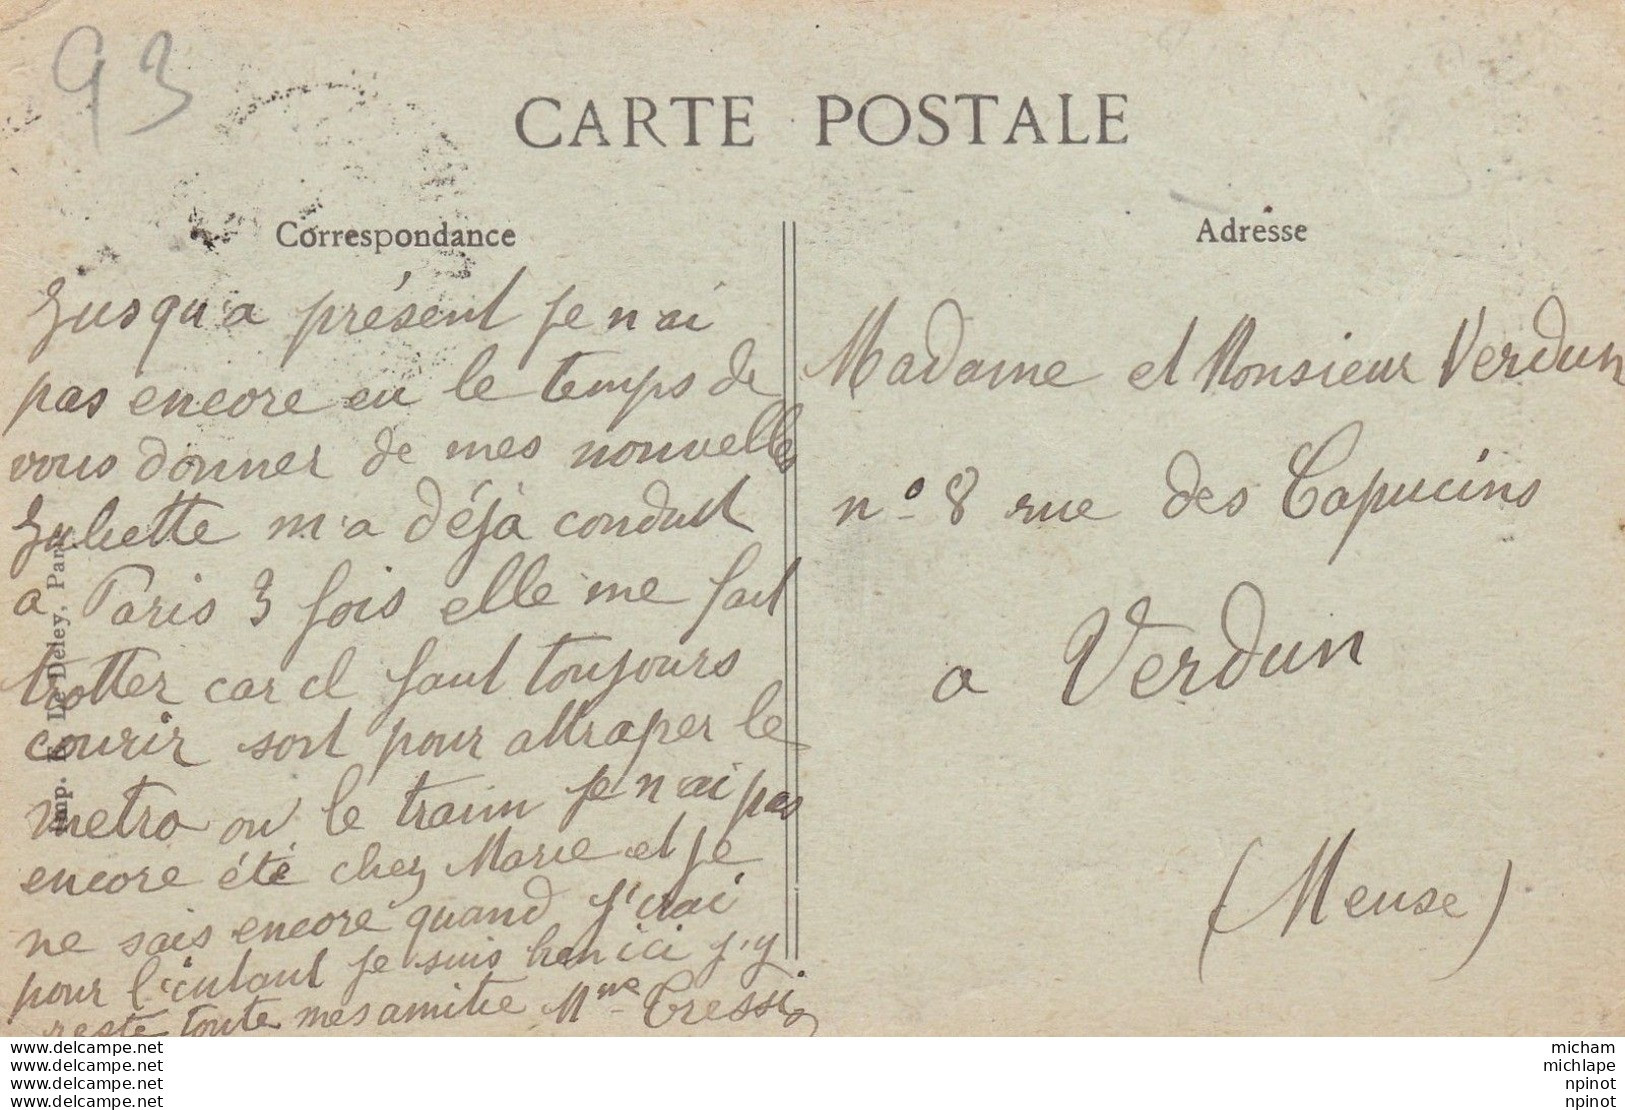 93
CARTE POSTALE
Correspondance
Adresse
Jusqu'a présent je n'ai
pas encore eu le temps de
vous donner de mes nouvelles
Juliette m'a déjà conduit
a Paris 3 fois elle me fait
trotter car il faut toujours
courir soit pour attraper le
metro ou le train je n'ai pas
encore été chez Marie et je
ne sais encore quand j'irai
pour l'instant je suis bien ici j'y
reste toute mes amitie Mme
Madame et Monsieur Verdun
n° 8 rue des Capucins
a Verdun
(Meuse)
Imp. E. Le Deley, Paris
www.delcampe.net
www.delcampe.net
www.delcampe.net
www.delcampe.net
micham
michlape
npinot
npinot